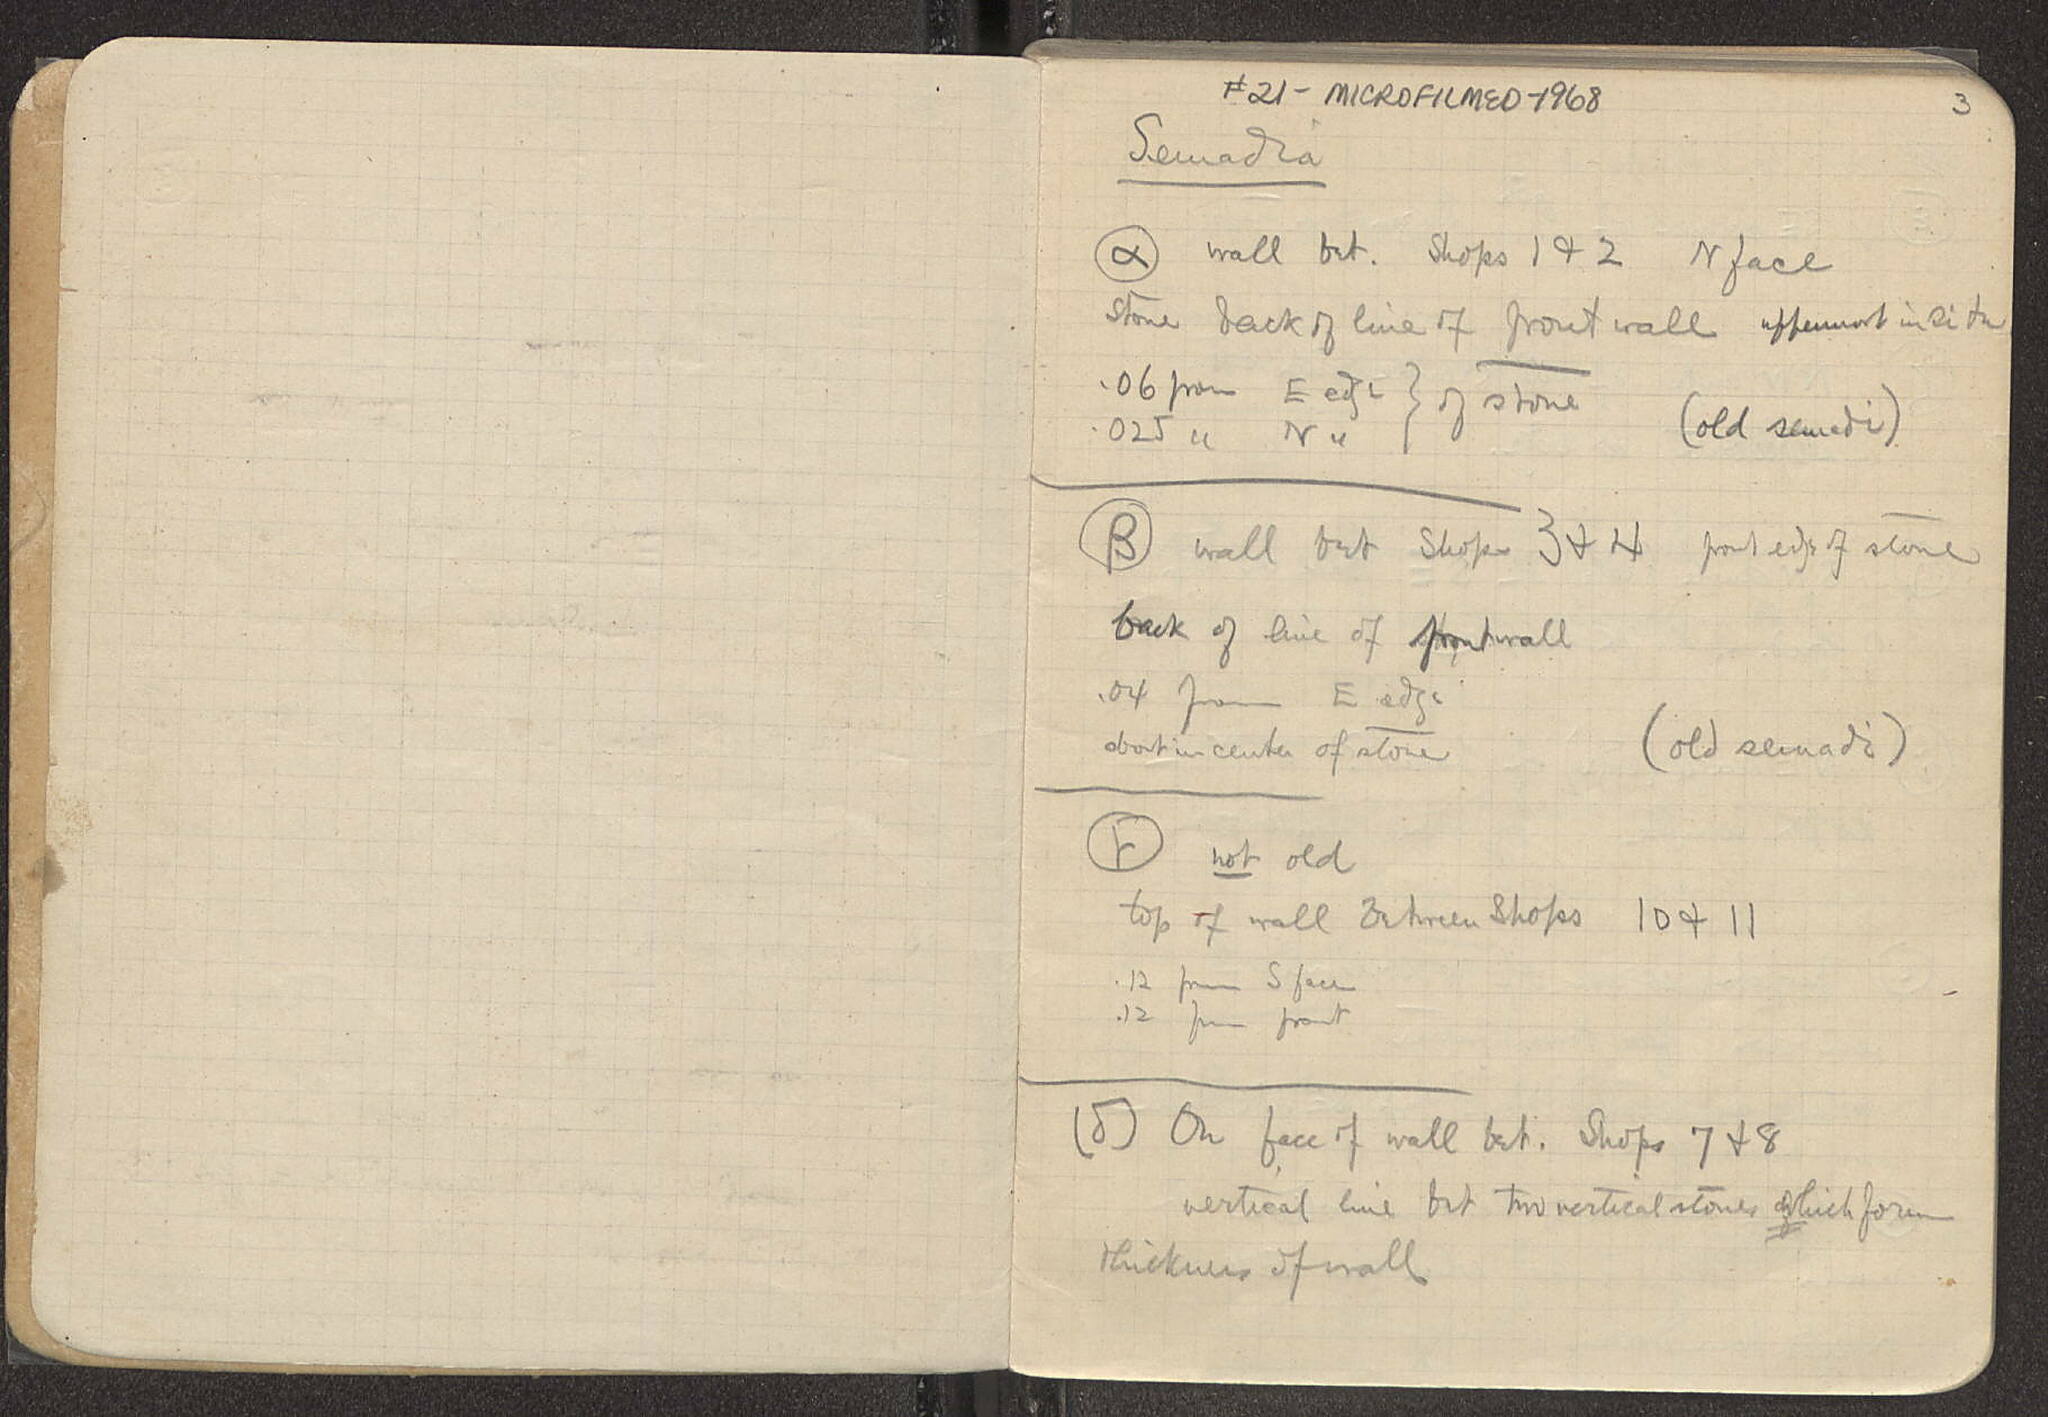 #21 - MICROFILMED - 1968
3
Semadia
α wall bet. Shops 1 & 2 N face
stone back of line of front wall uppermost in situ
.06 from E edge } of stone
.025 " N " (old semadi)
β wall bet Shops 3 & 4 front edge of stone
back of line of front wall
.04 from E edge
about in center of stone (old semadi)
Γ not old
top of wall between Shops 10 & 11
.12 from S face
.12 from front
(δ) On face of wall bet. Shops 7 & 8
vertical line bet two vertical stones which form
thickness of wall